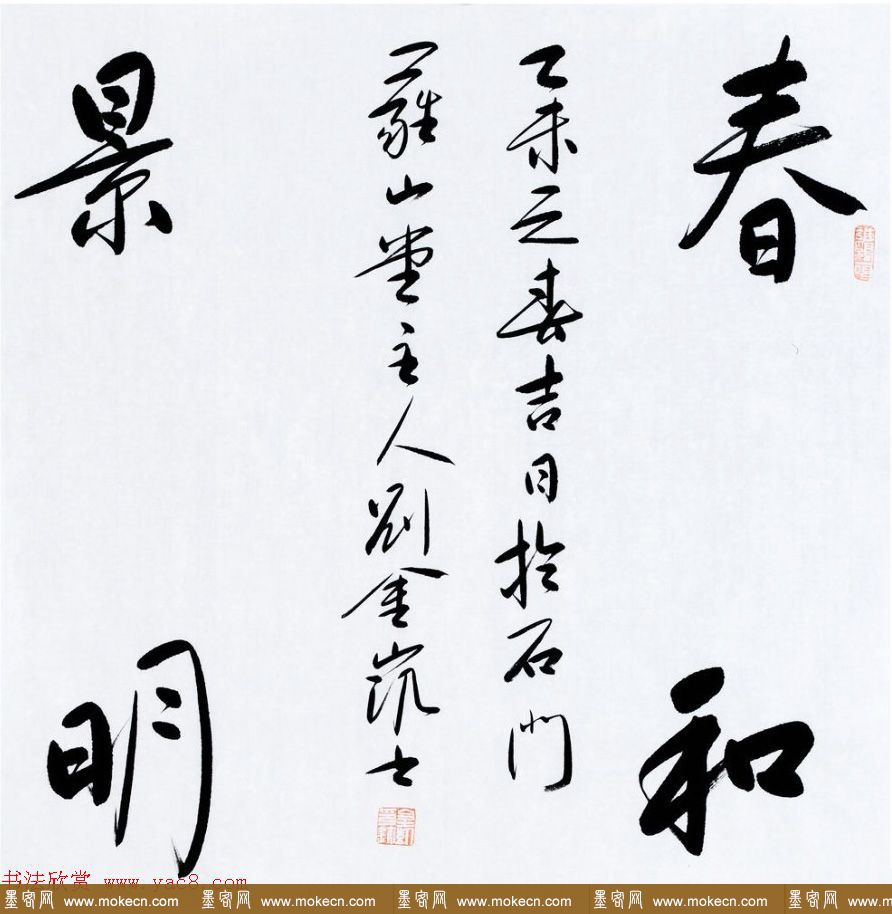 春和
乙未之春吉日於石門
羅山堂主人劉金凱士
景明
书法欣赏 www.yac8.com
墨客网 www.mokecn.com 墨客网 www.mokecn.com 墨客网 www.mokecn.com 墨客网 www.mokecn.com 墨客网 www.m